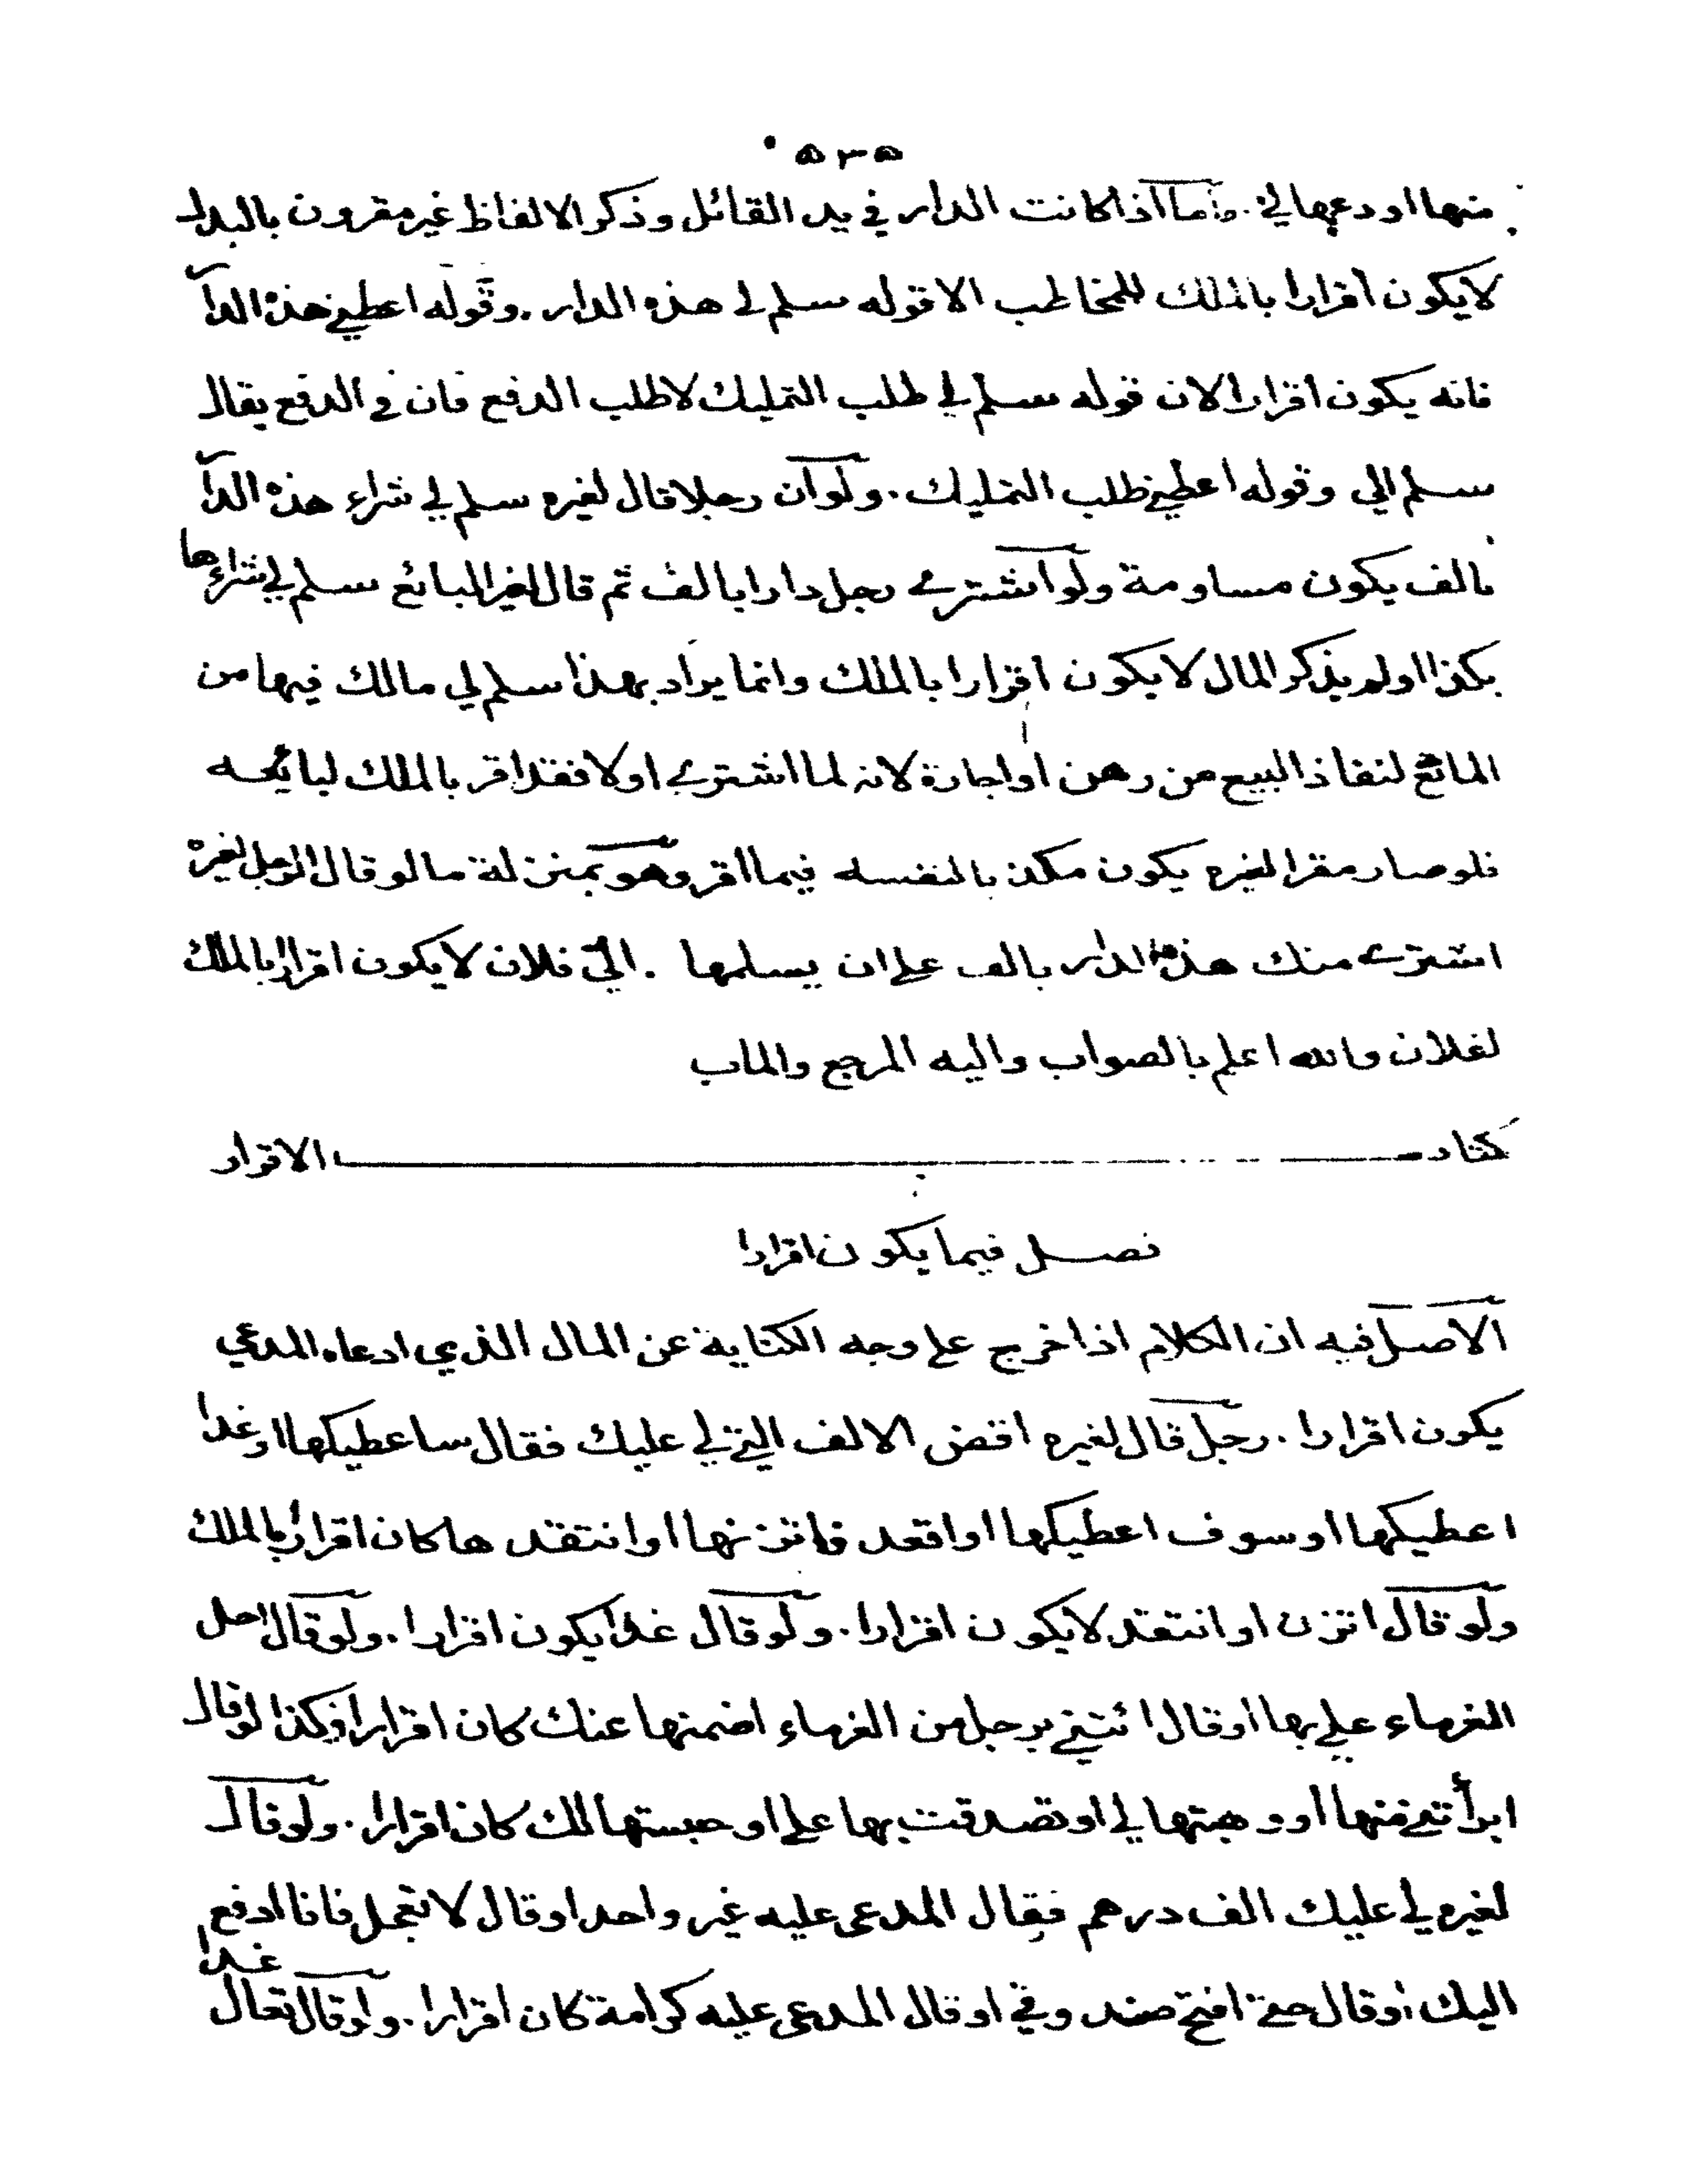 ٥٣٥
منها اودعها لي . واما اذا كانت الدار في يد القائل وذكر الالفاظ غير مقرون بالبدل
لا يكون اقرارا بالملك للمخاطب الا قوله سلم لي هذه الدار . وقوله اعطني هذه الدا
فانه يكون اقرارا لان قوله سلم لي طلب التمليك لا طلب الدفع فان في الدفع يقال
سلم الي وقوله اعطني طلب التمليك . ولو ان رجلا قال لغيره سلم لي شراء هذه الدا
بالف يكون مساومة ولو اشترى رجل دارا بالف ثم قال لغير البائع سلم لي شراءها
بكذا او لم يذكر المال لا يكون اقرارا بالملك وانما يراد بهذا سلم لي مالك فيها من
المانع لنفاذ البيع من رهن او اجارة لانه لما اشترى اولا فقد اقر بالملك لبايعه
فلو صار مقرا لغيره يكون مكذبا لنفسه فيما اقر وهو بمنزلة ما لو قال الرجل لغيره
اشترى منك هذه الدار بالف على ان يسلمها . الي فلان لا يكون اقرارا بالملك
لفلان والله اعلم بالصواب واليه المرجع والماب
كتاب الاقرار
فصل فيما يكون اقرارا
الاصل فيه ان الكلام اذا خرج على وجه الكناية عن المال الذي ادعاه المدعي
يكون اقرارا . رجل قال لغيره اقض الالف التي لي عليك فقال ساعطيكها او غدا
اعطيكها او سوف اعطيكها او اقعد فاتزنها او انتقدها كان اقرارا بالملك
ولو قال اتزن او انتقد لا يكون اقرارا . ولو قال غدا يكون اقرارا . ولو قال احل
الغرماء علي بها او قال ائتني برجل من الغرماء اضمنها عنك كان اقرارا وكذا لو قال
ابرأتني منها او وهبتها لي او تصدقت بها علي او حبستها لك كان اقرارا . ولو قال
لغيره لي عليك الف درهم فقال المدعى عليه غير واحد او قال لا تعجل فانا ادفع غدا
اليك او قال حتى افتح صندوقي او قال المدعى عليه كرامة كان اقرارا . ولو قال تعال